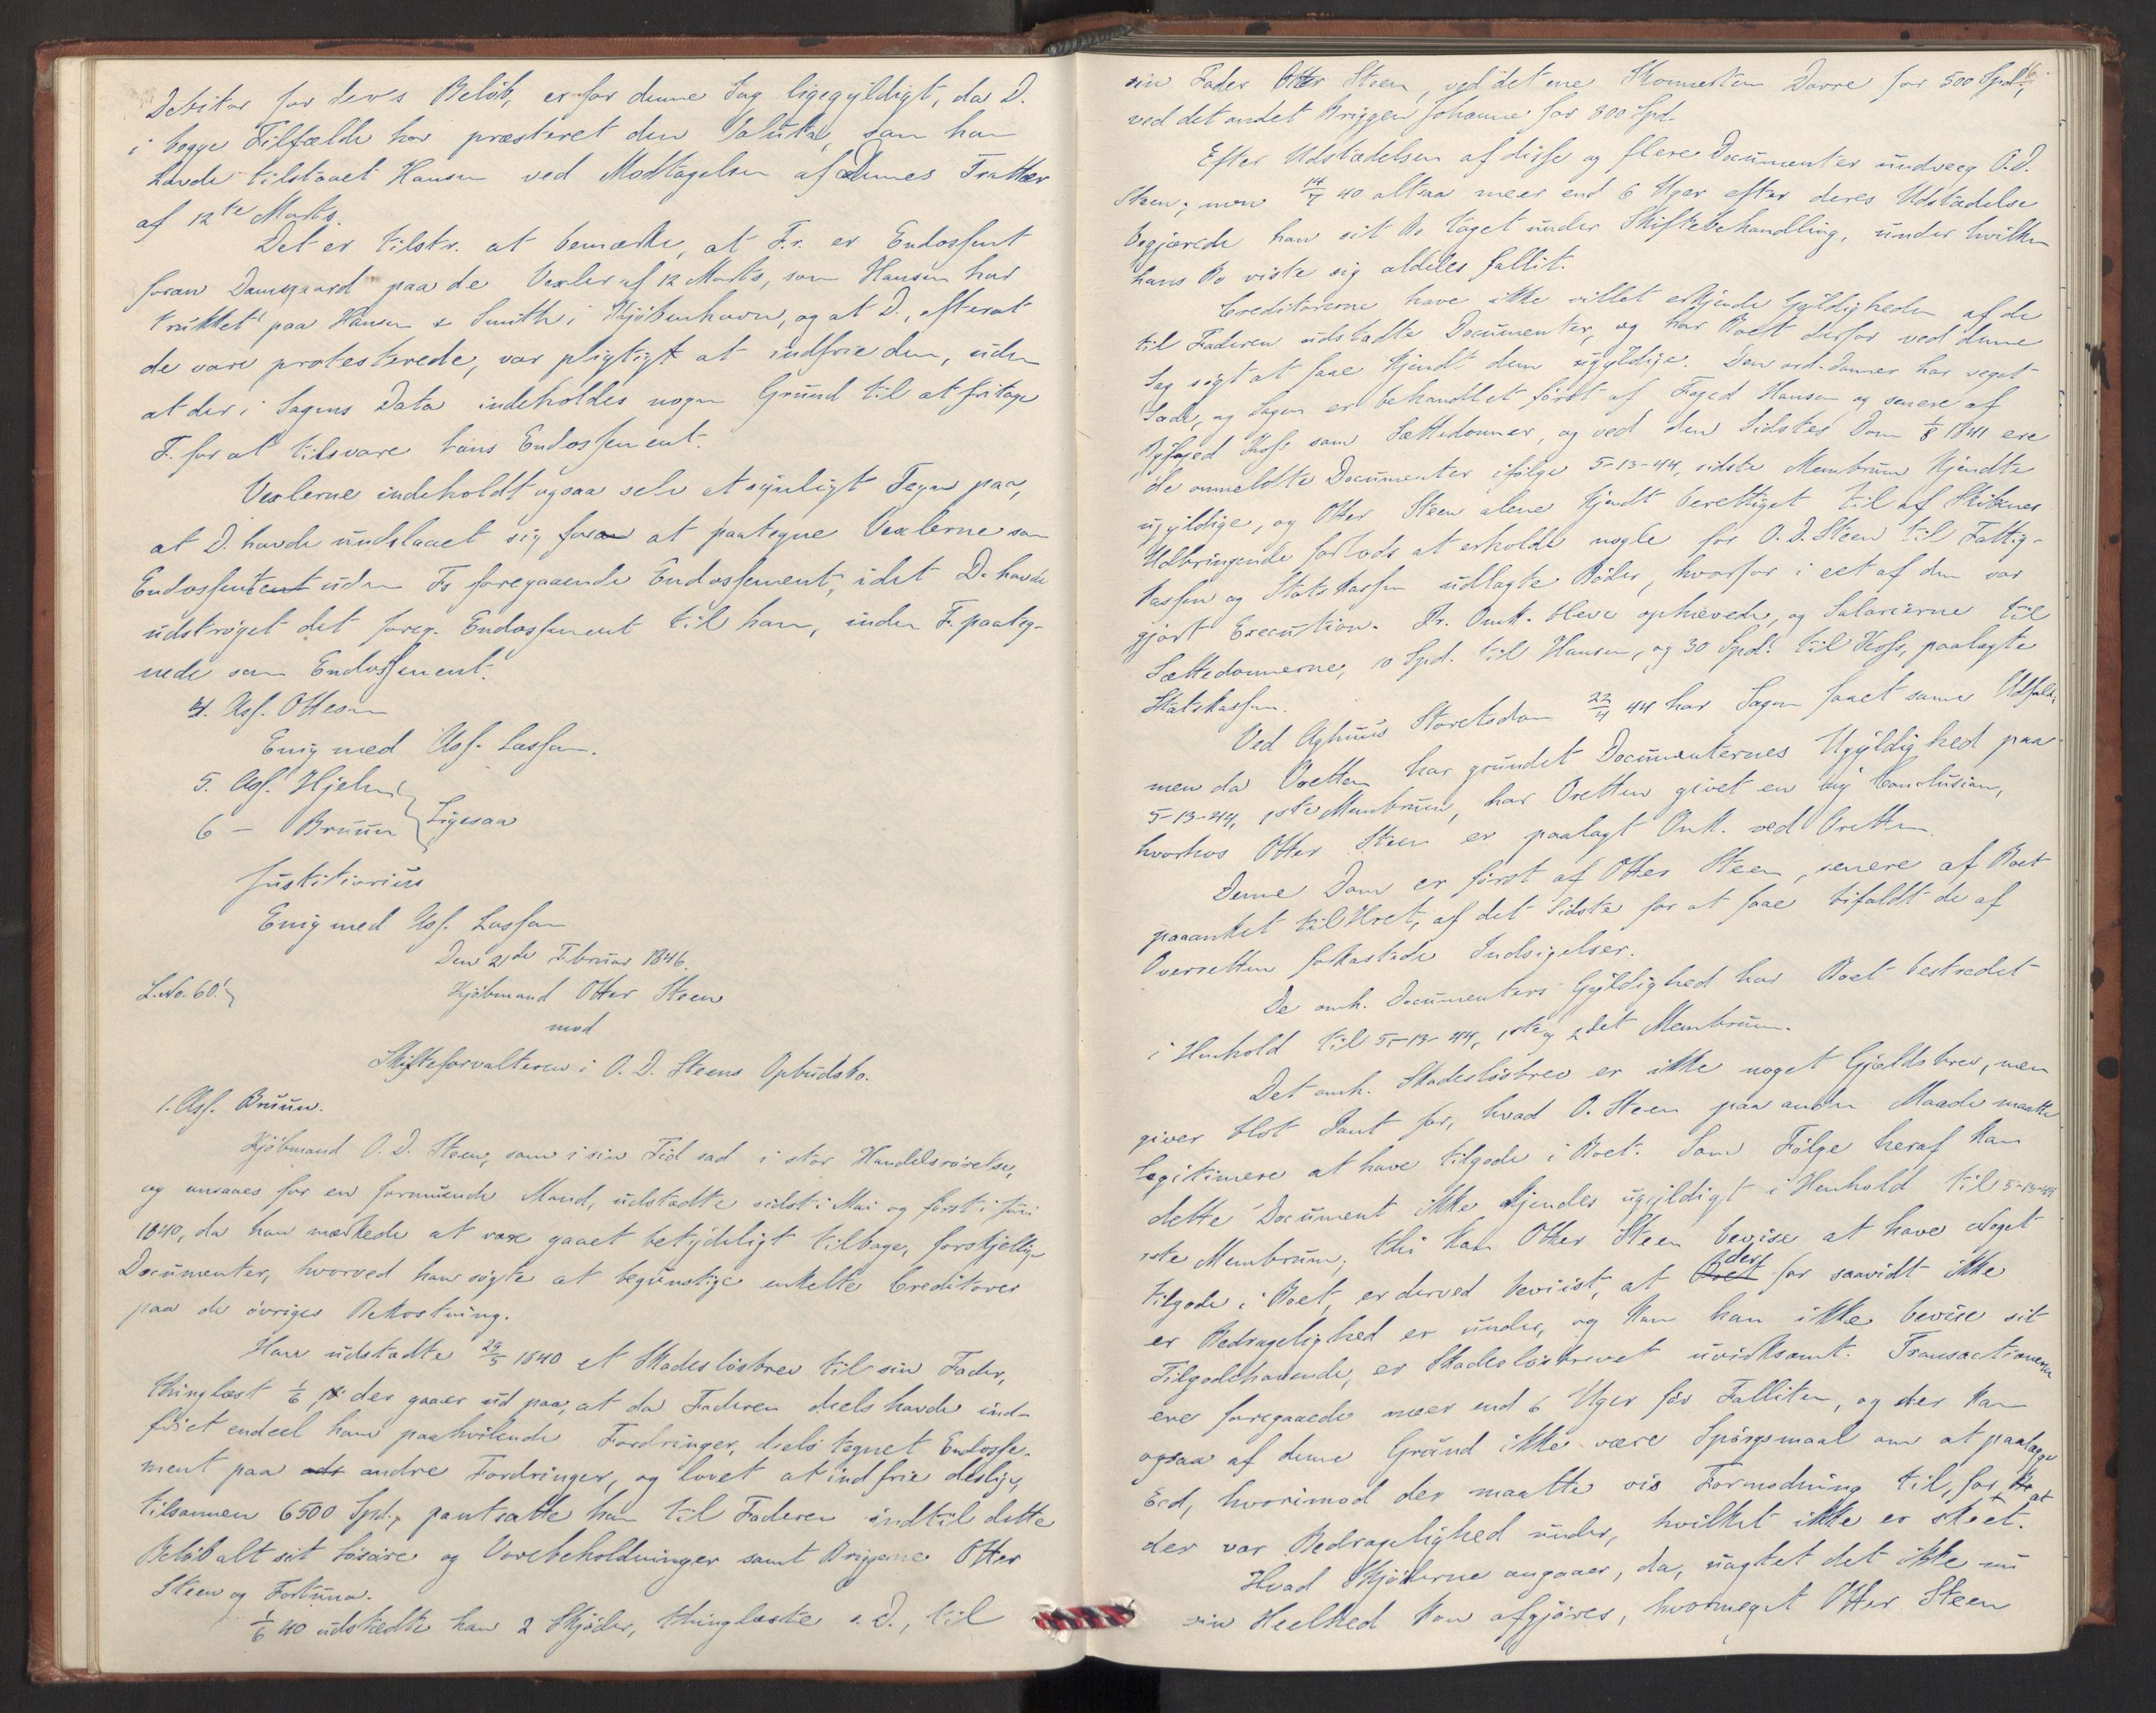 Debitor for deres Beløb, er for denne Sag ligegyldigt, da D.
i begge Tilfælde har præsteret den Valuta, som han
havde tilstaaet Hansen ved Modtagelsen af dennes Tratter
af 12te Marts.
Det er tilstr. at bemærke, at F. er Endossent
foran Damgaard paa de Vexler af 12 Marts, som Hansen har
trukket paa Hansen & Smith i Kjøbenhavn, og at D., efterat
de vare protesterede, var pligtigt at indfrie dem, uden
at der i Sagens Data indeholdes nogen Grund til at fritage
F. for at tilsvare hans Endossement.
Vexlerne indeholdt ogsaa selv et synligt Tegn paa,
at D. havde undslaaet sig for at paategne Vexlerne som
Endossent uden Fs foregaaende Endossement, idet D. havde
udstrøget det foreg. Endossement til ham, inden F. paateg-
nede som Endossement.
4. Ass. Ottesen
Enig med Ass. Lasson.
5. Ass. Hjelm
6 — Bruun } Ligesaa
Justitiarius
Enig med Ass. Lasson
Den 21de Februar 1846.
L. No. 60.
Kjøbmand Otter Steen
mod
Skifteforvalteren i O. D. Steens Opbudsbo.
1. Ass. Bruun.
Kjøbmand O. D. Steen, som i sin Tid sad i stor Handelsrørelse,
og ansaaes for en formuende Mand, udstædte sidst i Mai og først i Juni
1840, da han mærkede at være gaaet betydeligt tilbage, forskjellige
Documenter, hvorved han søgte at begunstige enkelte Creditorer
paa de øvriges Bekostning.
Han udstædte 29/5 1840 et Skadesløsbrev til sin Fader,
thinglæst 1/6, der gaaer ud paa, at da Faderen deels havde ind-
friet endeel ham paahvilende Fordringer, deels tegnet Endosse-
ment paa andre Fordringer, og lovet at indfrie deslige,
tilsammen 6500 Spd., pantsatte han til Faderen indtil dette
Beløb alt sit Løsøre og Varebeholdninger samt Briggerne Otter
Steen og Fortuna.
1/6 40 udstædte han 2 Skjøder, thinglæste s. D., til
sin Fader Otter Steen, ved det ene Skonnerten Dorre for 500 Spd.,
ved det andet Briggen Johanne for 800 Spd.
Efter Udstædelsen af disse og flere Documenter undveeg O. D.
Steen; men 14/7 40 altsaa meer end 6 Uger efter deres Udstædelse
begjærede han sit Bo taget under Skiftebehandling, under hvilken
hans Bo viste sig aldeles fallit.
Creditorerne have ikke villet erkjende Gyldigheden af de
til Faderen udstædte Documenter, og har Boet derfor ved denne
Sag søgt at faae kjendt dem ugyldige. Den ord. Dommer har veget
Sæde, og Sagen er behandlet først af Foged Hansen og senere af
Byfoged Koss som Sættedommer, og ved den Sidstes Dom 1/8 1841 ere
de anmeldte Documenter ifølge 5-13-44, sidste Membrum kjendte
ugyldige, og Otter Steen alene kjendt berettiget til af Skibenes
Udbringende forlods at erholde nogle for O. D. Steen til Fattig-
kassen og Statskassen udlagte Bøder, hvorfor i eet af dem var
gjort Execution. Pr. Omk. bleve ophævede, og Salarierne til
Sættedommerne, 10 Spd. til Hansen, og 30 Spd. til Koss, paalagte
Statskassen.
Ved Aghuus Stiftsoverretsdom 22/4 44 har Sagen faaet samme Udfald,
men da Oretten har grundet Documenternes Ugyldighed paa
5-13-44, 1ste Membrum, har Oretten givet en ny Conclusion,
hvorhos Otter Steen er paalagt Omk. ved Oretten.
Denne Dom er først af Otter Steen, senere af Boet
paaanket til Hret, af det Sidste for at faae bifaldt de af
Overretten forkastede Indsigelser.
De omh. Documenters Gyldighed har Boet bestredet
i Henhold til 5-13-44, 1ste og 2det Membrum.
Det omh. Skadesløsbrev er ikke noget Gjældsbrev, men
giver blot Pant for, hvad O. Steen paa anden Maade maatte
legitimere at have tilgode i Boet. Som Følge heraf kan
dette Document ikke kjendes ugyldigt i Henhold til 5-13-44
1ste Membrum, thi kan Otter Steen bevise at have Noget
tilgode i Boet, er derved beviist, at der for saavidt ikke
er Bedragelighed er under, og kan han ikke bevise sit
Tilgodehavende, er Skadesløsbrevet uvirksomt. Transactionerne
ere foregaaede meer end 6 Uger før Falliten, og der kan
ogsaa af denne Grund ikke være Spørgsmaal om at paalægge
Eed, hvorimod der maatte vis Formodning til, for at
der var Bedragelighed under, hvilket ikke er skeet.
Hvad Skjøderne angaaer, da, uagtet det ikke nu
sin Heelhed kan afgjøres, hvormeget Otter Steen